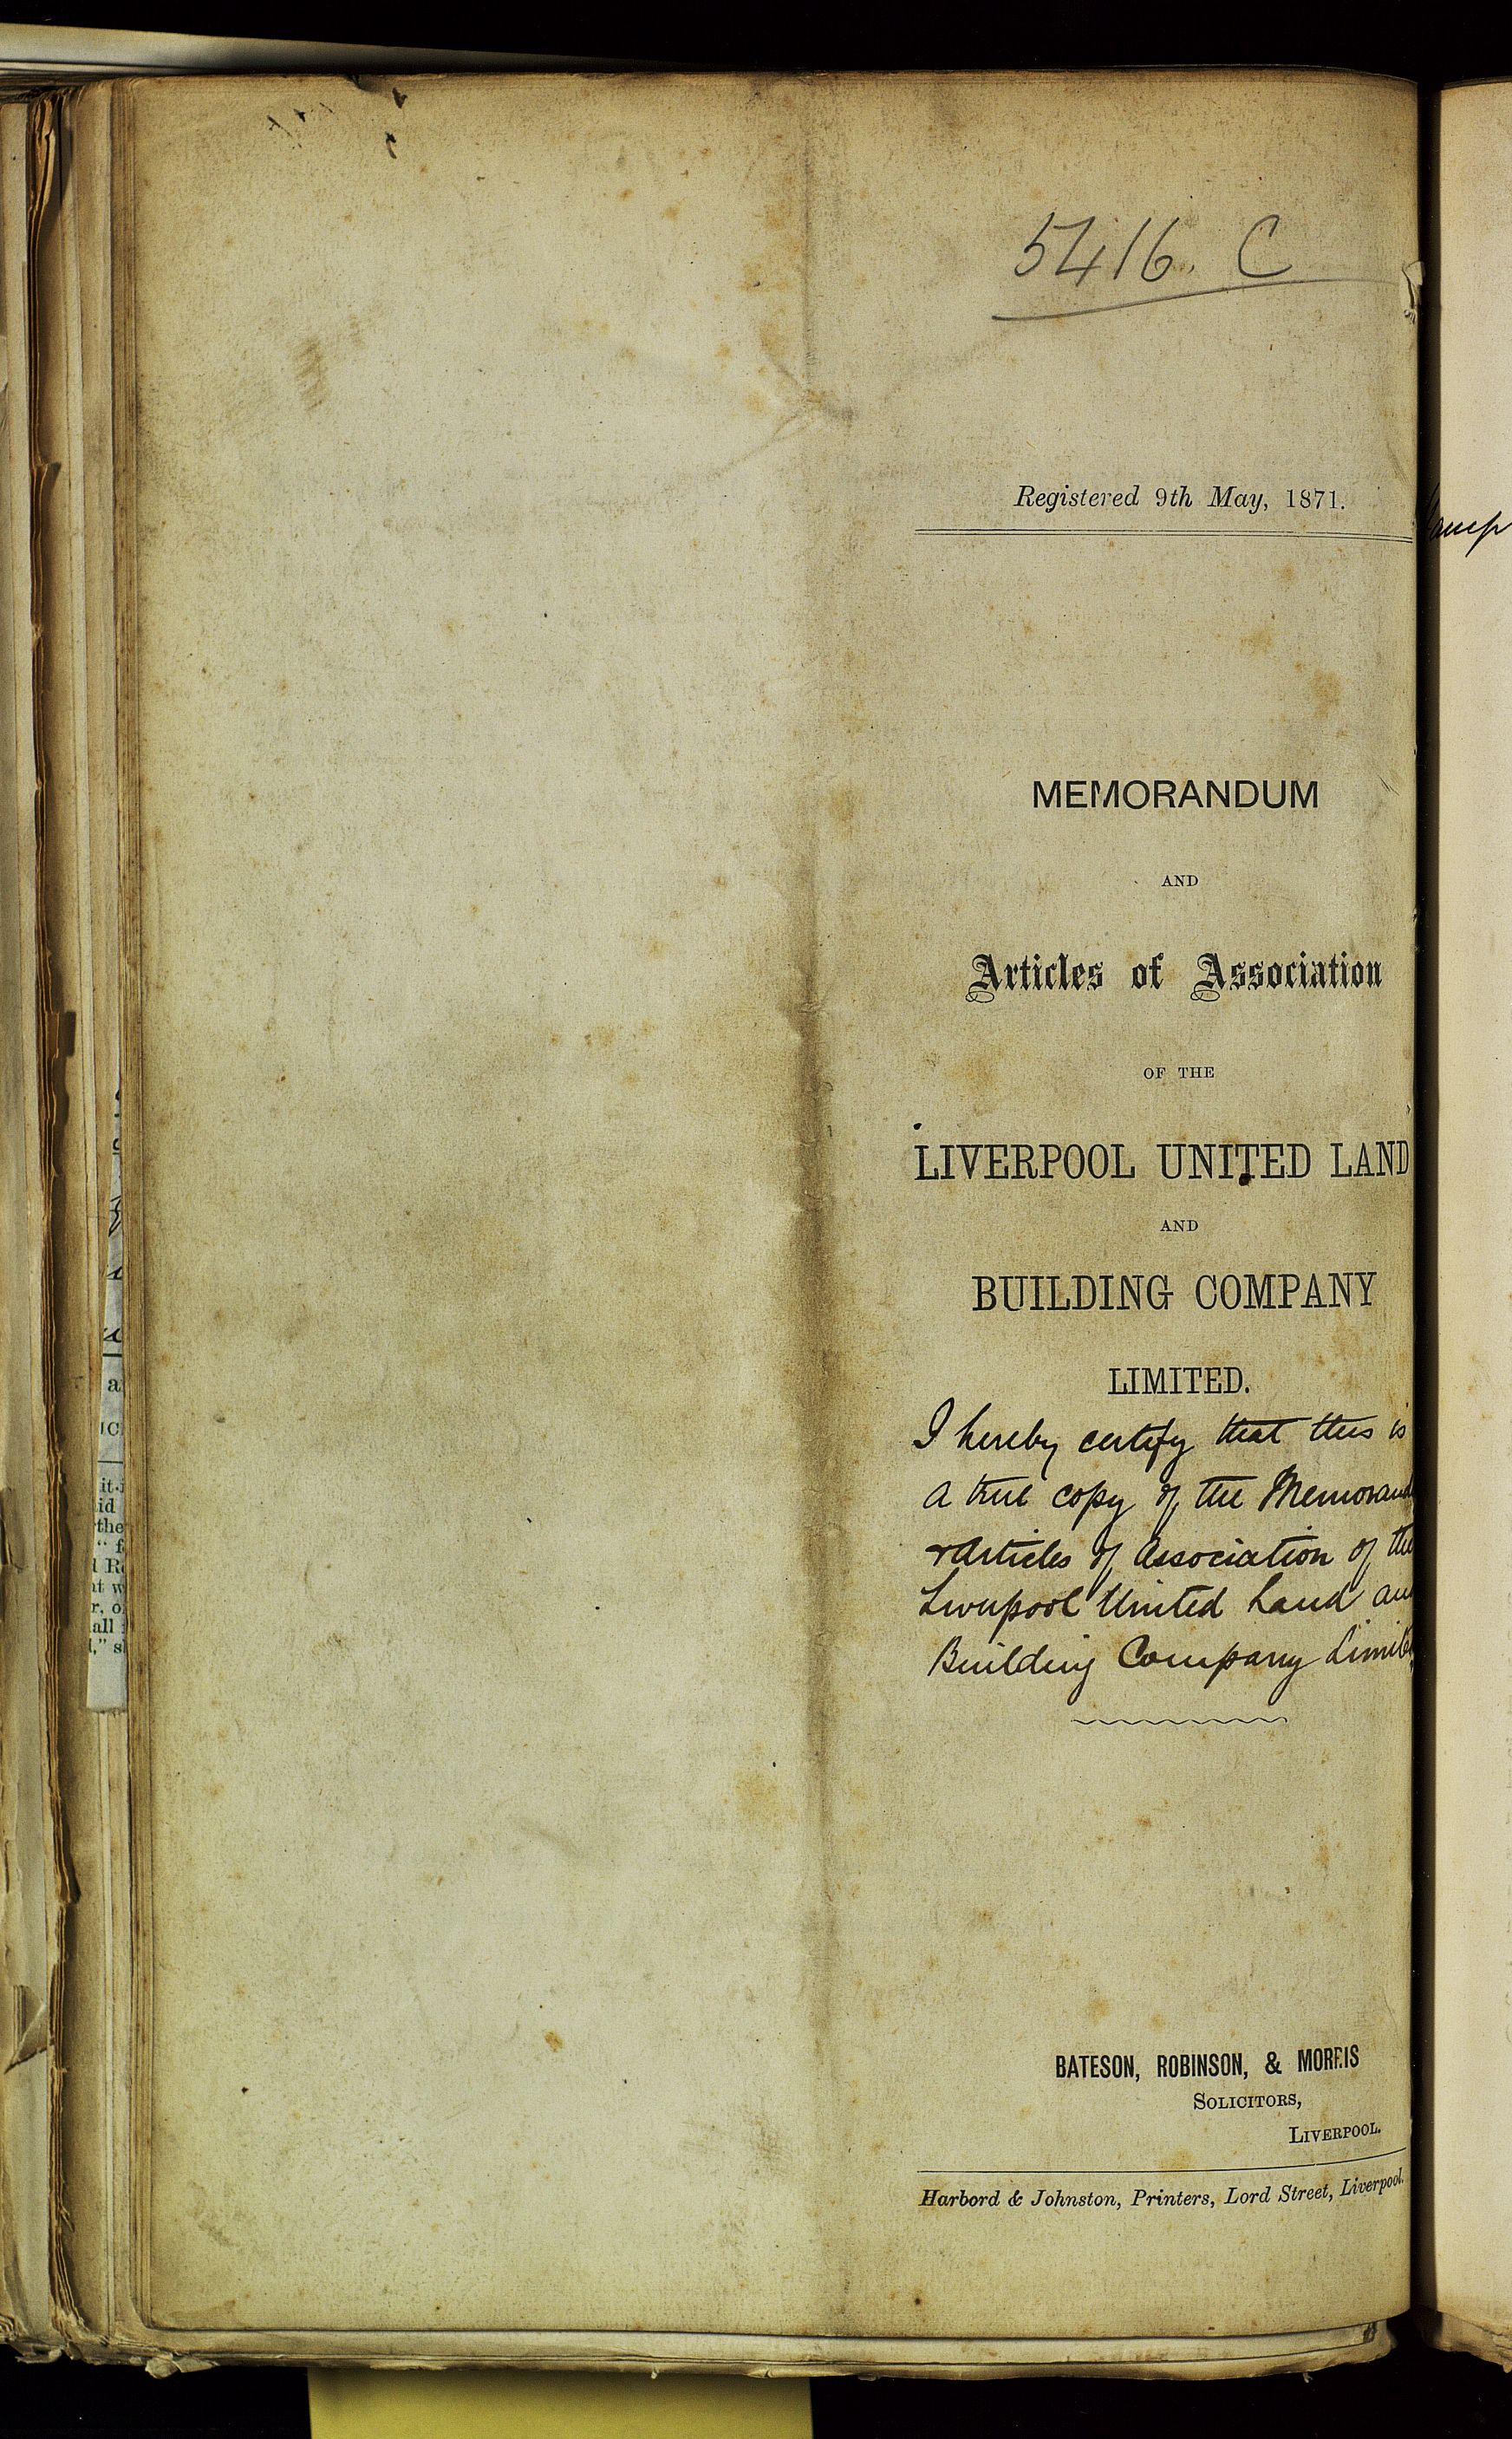 5416. C
Registered 9th May, 1871.
MEMORANDUM
AND
Articles of Association
OF THE
LIVERPOOL UNITED LAND
AND
BUILDING COMPANY
LIMITED.
I hereby certify that this is
a true copy of the Memorand
& Articles of Association of the
Liverpool United Land an
Building Company Limite
BATESON, ROBINSON, & MORRIS
SOLICITORS,
LIVERPOOL.
Harbord & Johnston, Printers, Lord Street, Liverpool.